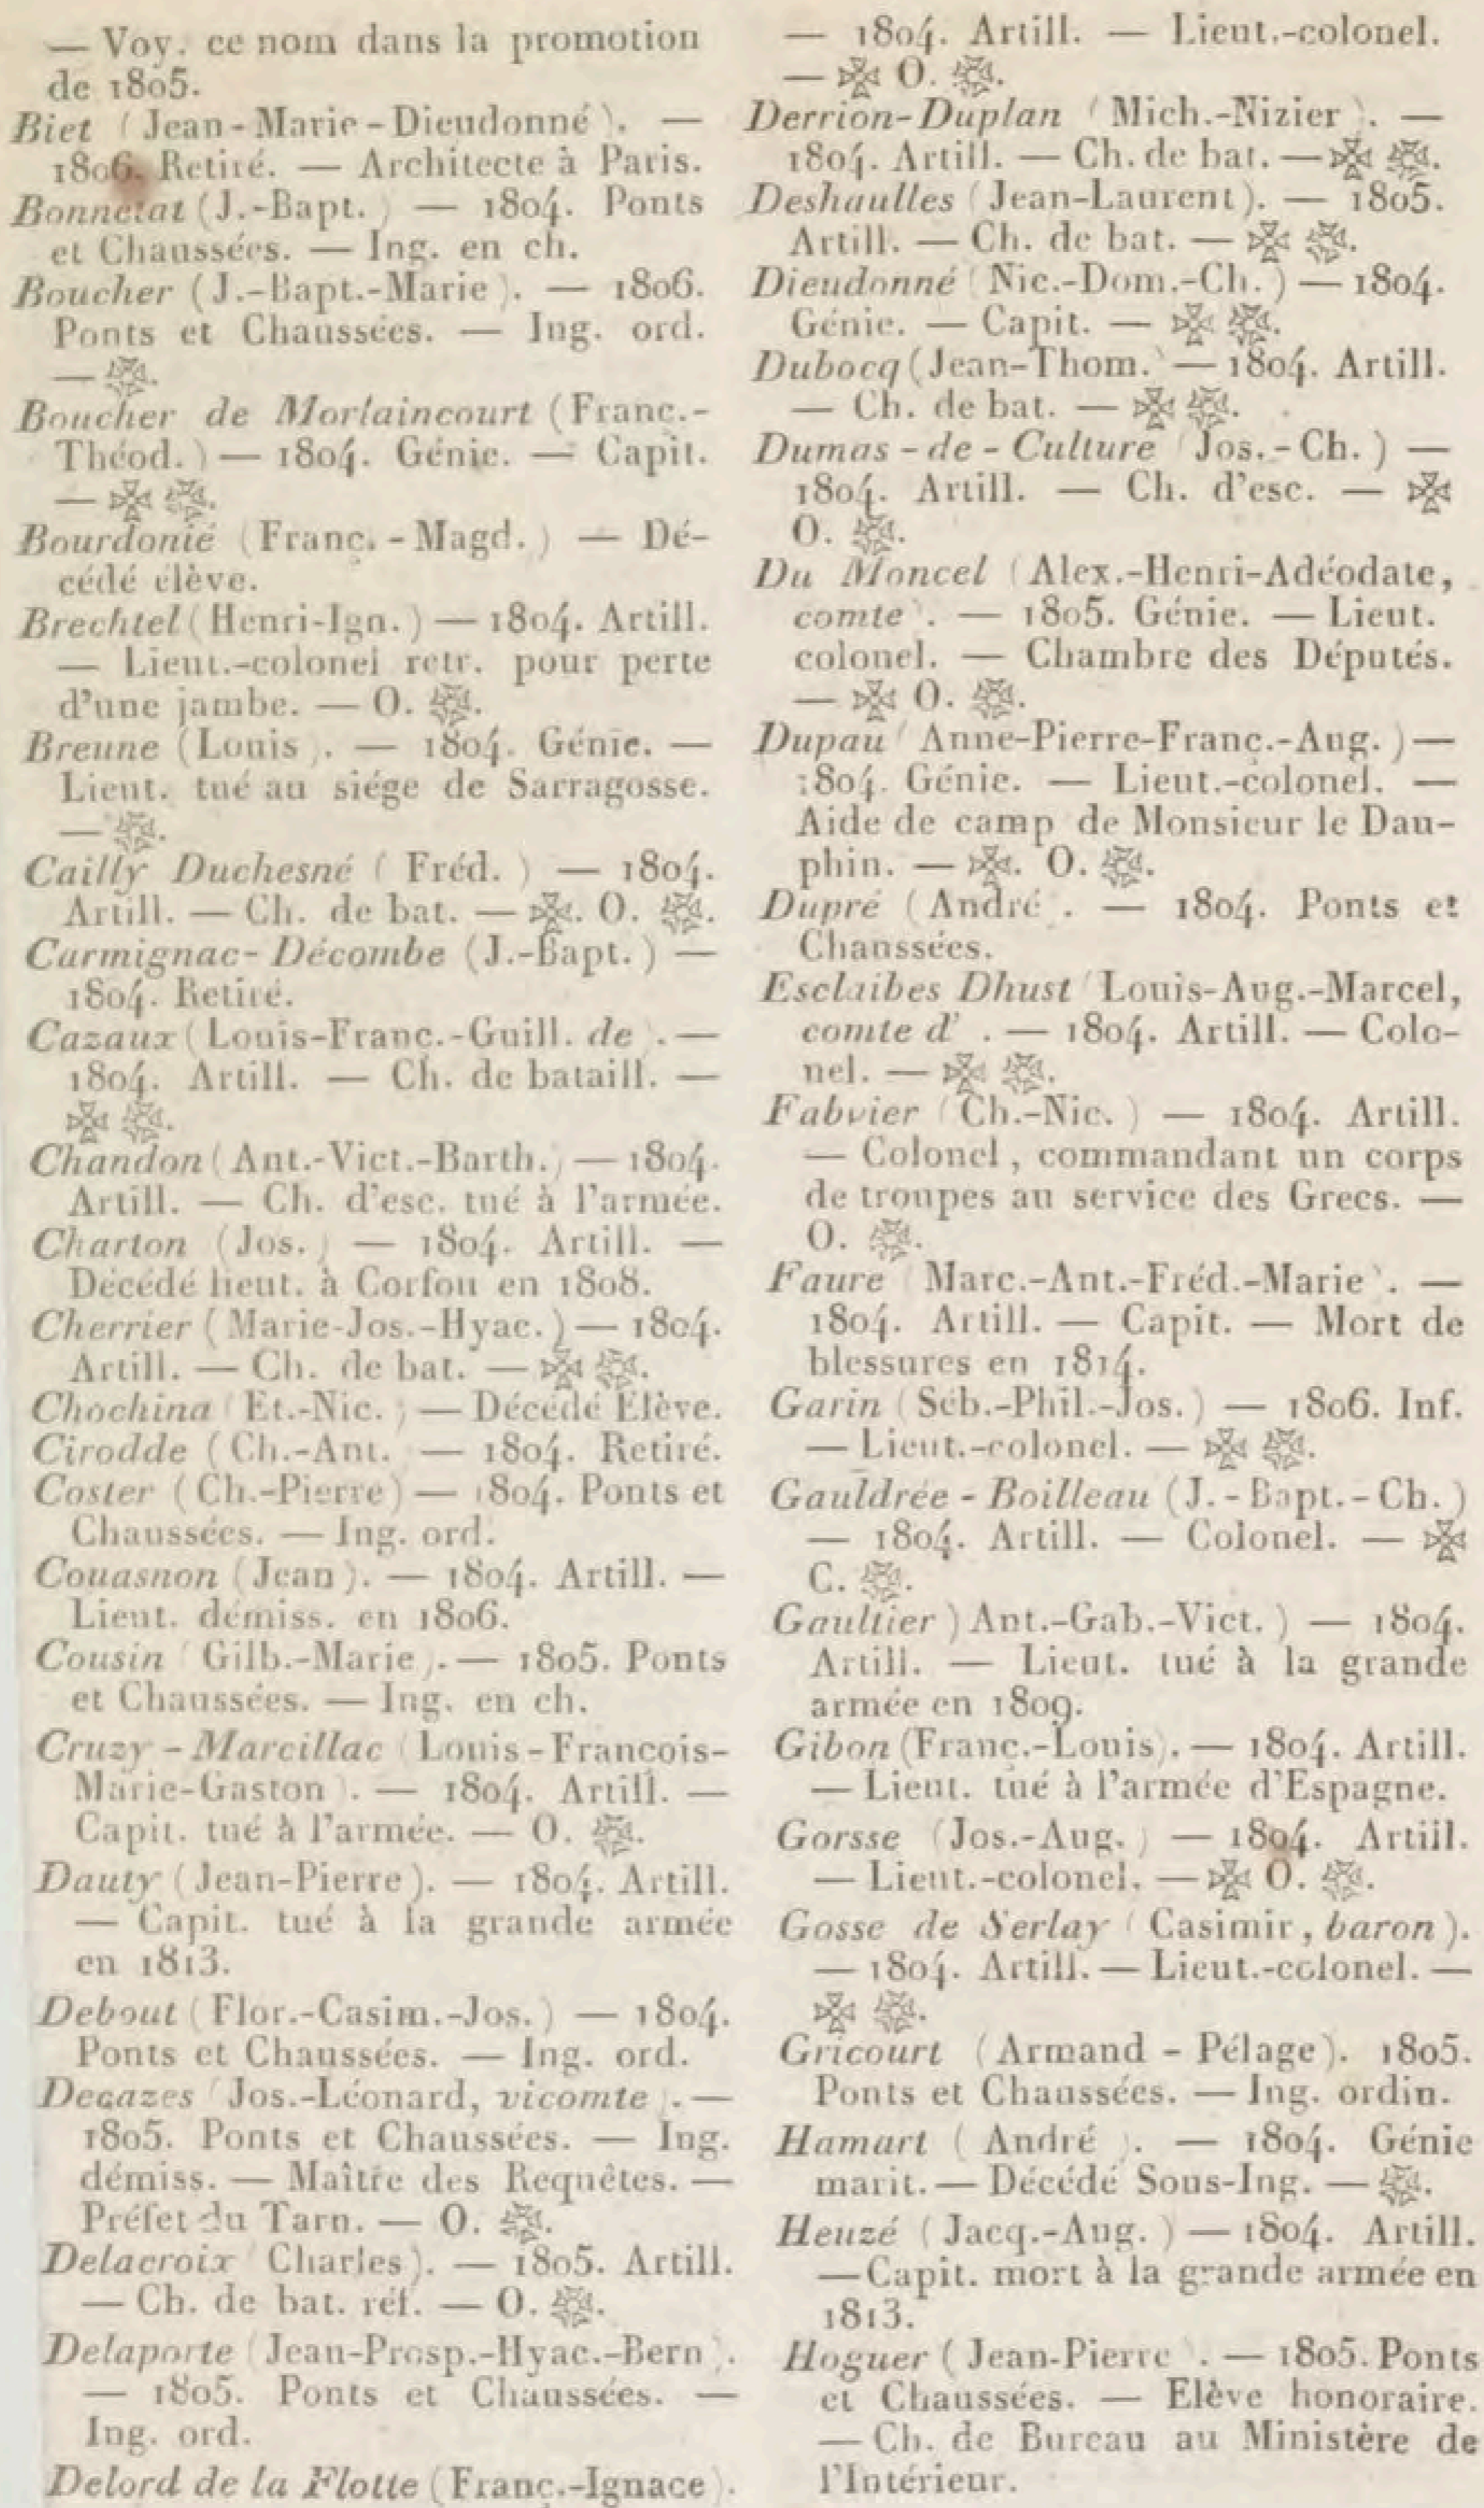 — Voy. ce nom dans la promotion
de 1805.
Biet (Jean-Marie-Dieudonné). —
1806. Retiré. — Architecte à Paris.
Bonnetat (J.-Bapt.) — 1804. Ponts
et Chaussées. — Ing. en ch.
Boucher (J.-Bapt.-Marie). — 1806.
Ponts et Chaussées. — Ing. ord.
— .
Boucher de Morlaincourt (Franç.-
Théod.) — 1804. Génie. — Capit.
— .
Bourdonié (Franç.-Magd.) — Dé-
cédé élève.
Brechtel (Henri-Ign.) — 1804. Artill.
— Lieut.-colonel retr. pour perte
d'une jambe. — O. .
Breune (Louis). — 1804. Génie. —
Lieut. tué au siége de Sarragosse.
— .
Cailly Duchesné (Fréd.) — 1804.
Artill. — Ch. de bat. — . O. .
Carmignac-Décombe (J.-Bapt.) —
1804. Retiré.
Cazaux (Louis-Franc.-Guill. de). —
1804. Artill. — Ch. de bataill. —
.
Chandon (Ant.-Vict.-Barth.) — 1804.
Artill. — Ch. d'esc. tué à l'armée.
Charton (Jos.) — 1804. Artill. —
Décédé lieut. à Corfou en 1808.
Cherrier (Marie-Jos.-Hyac.) — 1804.
Artill. — Ch. de bat. — .
Chochina (Et.-Nic.) — Décédé Elève.
Cirodde (Ch.-Ant. — 1804. Retiré.
Coster (Ch.-Pierre) — 1804. Ponts et
Chaussées. — Ing. ord.
Couasnon (Jean). — 1804. Artill. —
Lieut. démiss. en 1806.
Cousin (Gilb.-Marie). — 1805. Ponts
et Chaussées. — Ing. en ch.
Cruzy-Marcillac (Louis-François-
Marie-Gaston). — 1804. Artill. —
Capit. tué à l'armée. — O. .
Dauty (Jean-Pierre). — 1804. Artill.
— Capit. tué à la grande armée
en 1813.
Debout (Flor.-Casim.-Jos.) — 1804.
Ponts et Chaussées. — Ing. ord.
Decazes (Jos.-Léonard, vicomte). —
1805. Ponts et Chaussées. — Ing.
démiss. — Maître des Requêtes. —
Préfet du Tarn. — O. .
Delacroix (Charles). — 1805. Artill.
— Ch. de bat. réf. — O. .
Delaporte (Jean-Prosp.-Hyac.-Bern).
— 1805. Ponts et Chaussées. —
Ing. ord.
Delord de la Flotte (Franç.-Ignace).
— 1804. Artill. — Lieut.-colonel.
— O. .
Derrion-Duplan (Mich.-Nizier). —
1804. Artill. — Ch. de bat. — .
Deshaulles (Jean-Laurent). — 1805.
Artill. — Ch. de bat. — .
Dieudonné (Nic.-Dom.-Ch.) — 1804.
Génie. — Capit. — .
Dubocq (Jean-Thom.) — 1804. Artill.
— Ch. de bat. — .
Dumas-de-Culture (Jos.-Ch.) —
1804. Artill. — Ch. d'esc. —
O. .
Du Moncel (Alex.-Henri-Adéodate,
comte). — 1805. Génie. — Lieut.
colonel. — Chambre des Députés.
— O. .
Dupau (Anne-Pierre-Franç.-Aug.) —
1804. Génie. — Lieut.-colonel. —
Aide de camp de Monsieur le Dau-
phin. — . O. .
Dupré (André). — 1804. Ponts et
Chaussées.
Esclaibes Dhust (Louis-Aug.-Marcel,
comte d'). — 1804. Artill. — Colo-
nel. — .
Fabvier (Ch.-Nic.) — 1804. Artill.
— Colonel, commandant un corps
de troupes au service des Grecs. —
O. .
Faure (Marc.-Ant.-Fréd.-Marie). —
1804. Artill. — Capit. — Mort de
blessures en 1814.
Garin (Séb.-Phil.-Jos.) — 1806. Inf.
— Lieut.-colonel. — .
Gauldrée-Boilleau (J.-Bapt.-Ch.)
— 1804. Artill. — Colonel. —
C. .
Gaultier )Ant.-Gab.-Vict.) — 1804.
Artill. — Lieut. tué à la grande
armée en 1809.
Gibon (Franç.-Louis). — 1804. Artill.
— Lieut. tué à l'armée d'Espagne.
Gorsse (Jos.-Aug.) — 1804. Artill.
— Lieut.-colonel. — O. .
Gosse de Serlay (Casimir, baron).
— 1804. Artill. — Lieut.-colonel. —
.
Gricourt (Armand-Pélage). 1805.
Ponts et Chaussées. — Ing. ordin.
Hamart (André). — 1804. Génie
marit. — Décédé Sous-Ing. — .
Heuzé (Jacq.-Aug.) — 1804. Artill.
— Capit. mort à la grande armée en
1813.
Hoguer (Jean-Pierre). — 1805. Ponts
et Chaussées. — Elève honoraire.
— Ch. de Bureau au Ministère de
l'Intérieur.